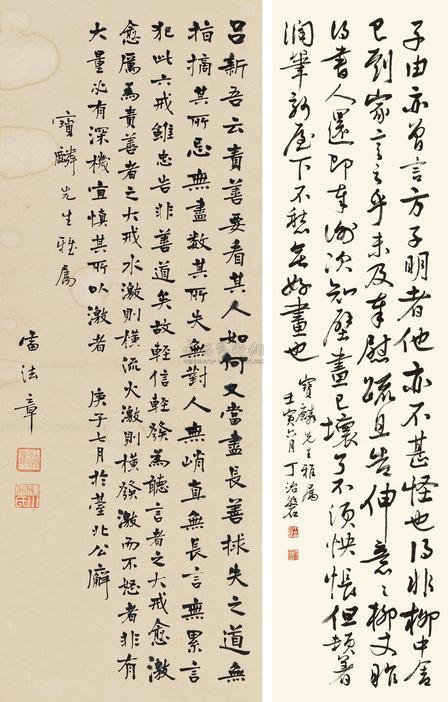 子由亦曾言方子明者他亦不甚怪也得非柳中舍
已到家言之乎未及奉慰疏且告伸意意柳丈昨
得書人還即奉謝次知壁畫已壞了不須怏悵但頓著
潤筆新屋下不愁無好畫也
寶麟先生雅屬
壬寅六月丁治磐
呂新吾云責善要看其人如何又當盡長善救失之道無
指摘其所忌無盡數其所失無對人無峭直無長言無累言
犯此六戒雖忠告非善道矣故輕信輕發為聽言者之大戒愈激
愈厲為責善者之大戒水激則橫流火激則橫發激而不怒者非有
大量必有深機宜慎其所以激者
庚子七月於臺北公廨
寶麟先生雅屬
雷法章